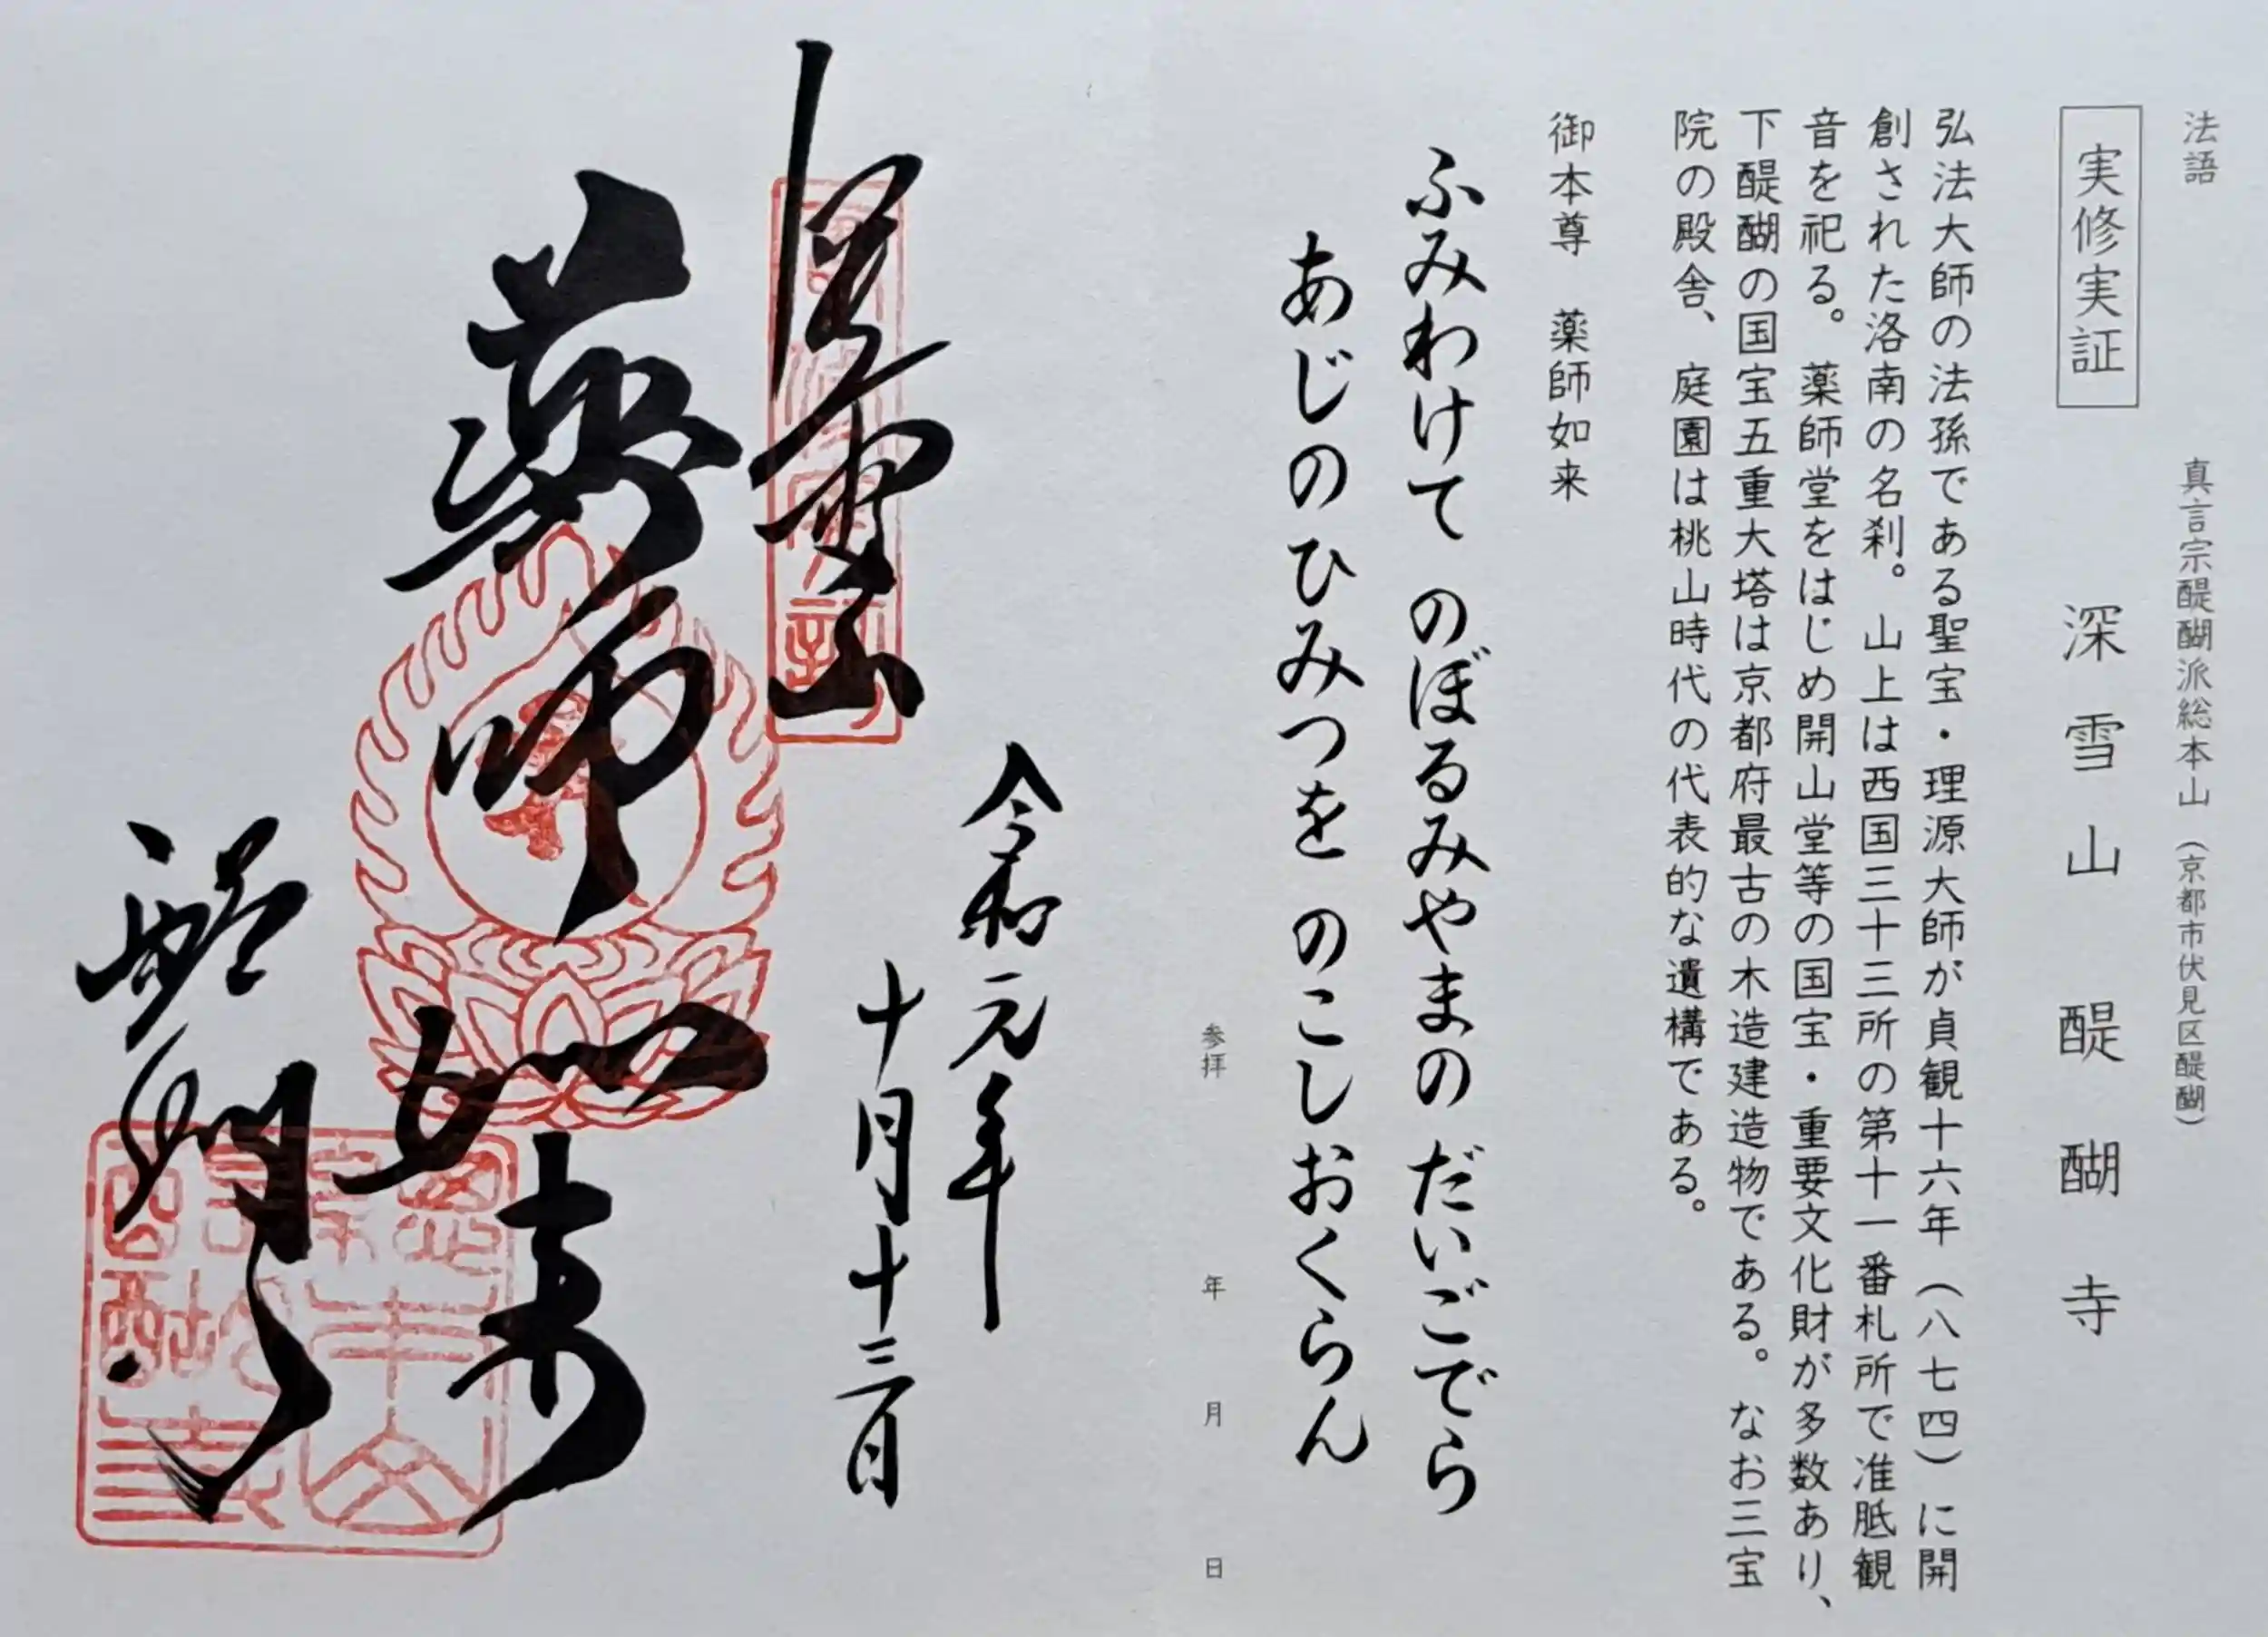 法語
真言宗醍醐派総本山（京都市伏見区醍醐）
実修実証
深雪山 醍醐寺
弘法大師の法孫である聖宝・理源大師が貞観十六年（八七四）に開
創された洛南の名刹。山上は西国三十三所の第十一番札所で准胝観
音を祀る。薬師堂をはじめ開山堂等の国宝・重要文化財が多数あり、
下醍醐の国宝五重大塔は京都府最古の木造建造物である。なお三宝
院の殿舎、庭園は桃山時代の代表的な遺構である。
御本尊 薬師如来
ふみわけて のぼるみやまの だいごでら
あじのひみつを のこしおくらん
参拝 年 月 日
令和元年
十月十三日
深雪山
薬師如来
醍醐寺